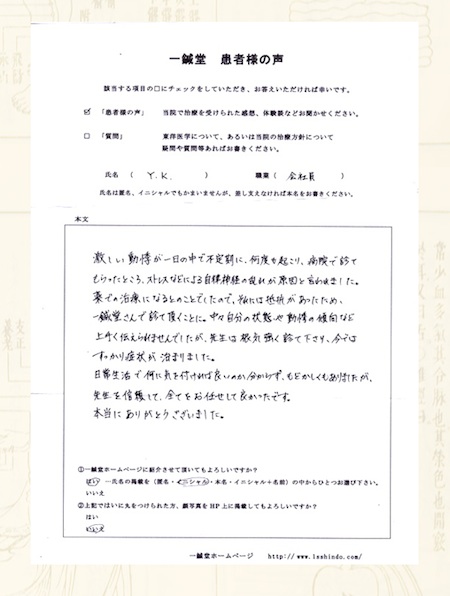 一鍼堂 患者様の声
該当する項目の□にチェックをしていただき、お答えいただければ幸いです。
☑ 「患者様の声」 当院で治療を受けられた感想、体験談などお聞かせください。
□ 「質問」 東洋医学について、あるいは当院の治療方針について
疑問や質問等あればお書きください。
氏名 ( Y.K. ) 職業 ( 会社員 )
氏名は匿名、イニシャルでもかまいませんが、差し支えなければ本名をお書きください。
本文
激しい動悸が一日の中で不定期に、何度も起こり、病院で診て
もらったところ、ストレスなどによる自律神経の乱れが原因と言われました。
薬での治療になるとのことでしたので、それには抵抗があったため、
一鍼堂さんで診て頂くことに。中々自分の状態や動悸の傾向など
上手く伝えられませんでしたが、先生は根気強く診て下さり、今では
すっかり症状が治まりました。
日常生活で何に気を付ければ良いのか分からず、もどかしくもありましたが、
先生を信頼して、全てをお任せして良かったです。
本当にありがとうございました。
①一鍼堂ホームページに紹介させて頂いてもよろしいですか?
はい ―氏名の掲載を(匿名・イニシャル・本名・イニシャル+名前)の中からひとつお選び下さい。
いいえ
②上記ではいに丸をつけられた方、顔写真をHP上に掲載してもよろしいですか?
はい
いいえ
一鍼堂ホームページ http://www.isshindo.com/